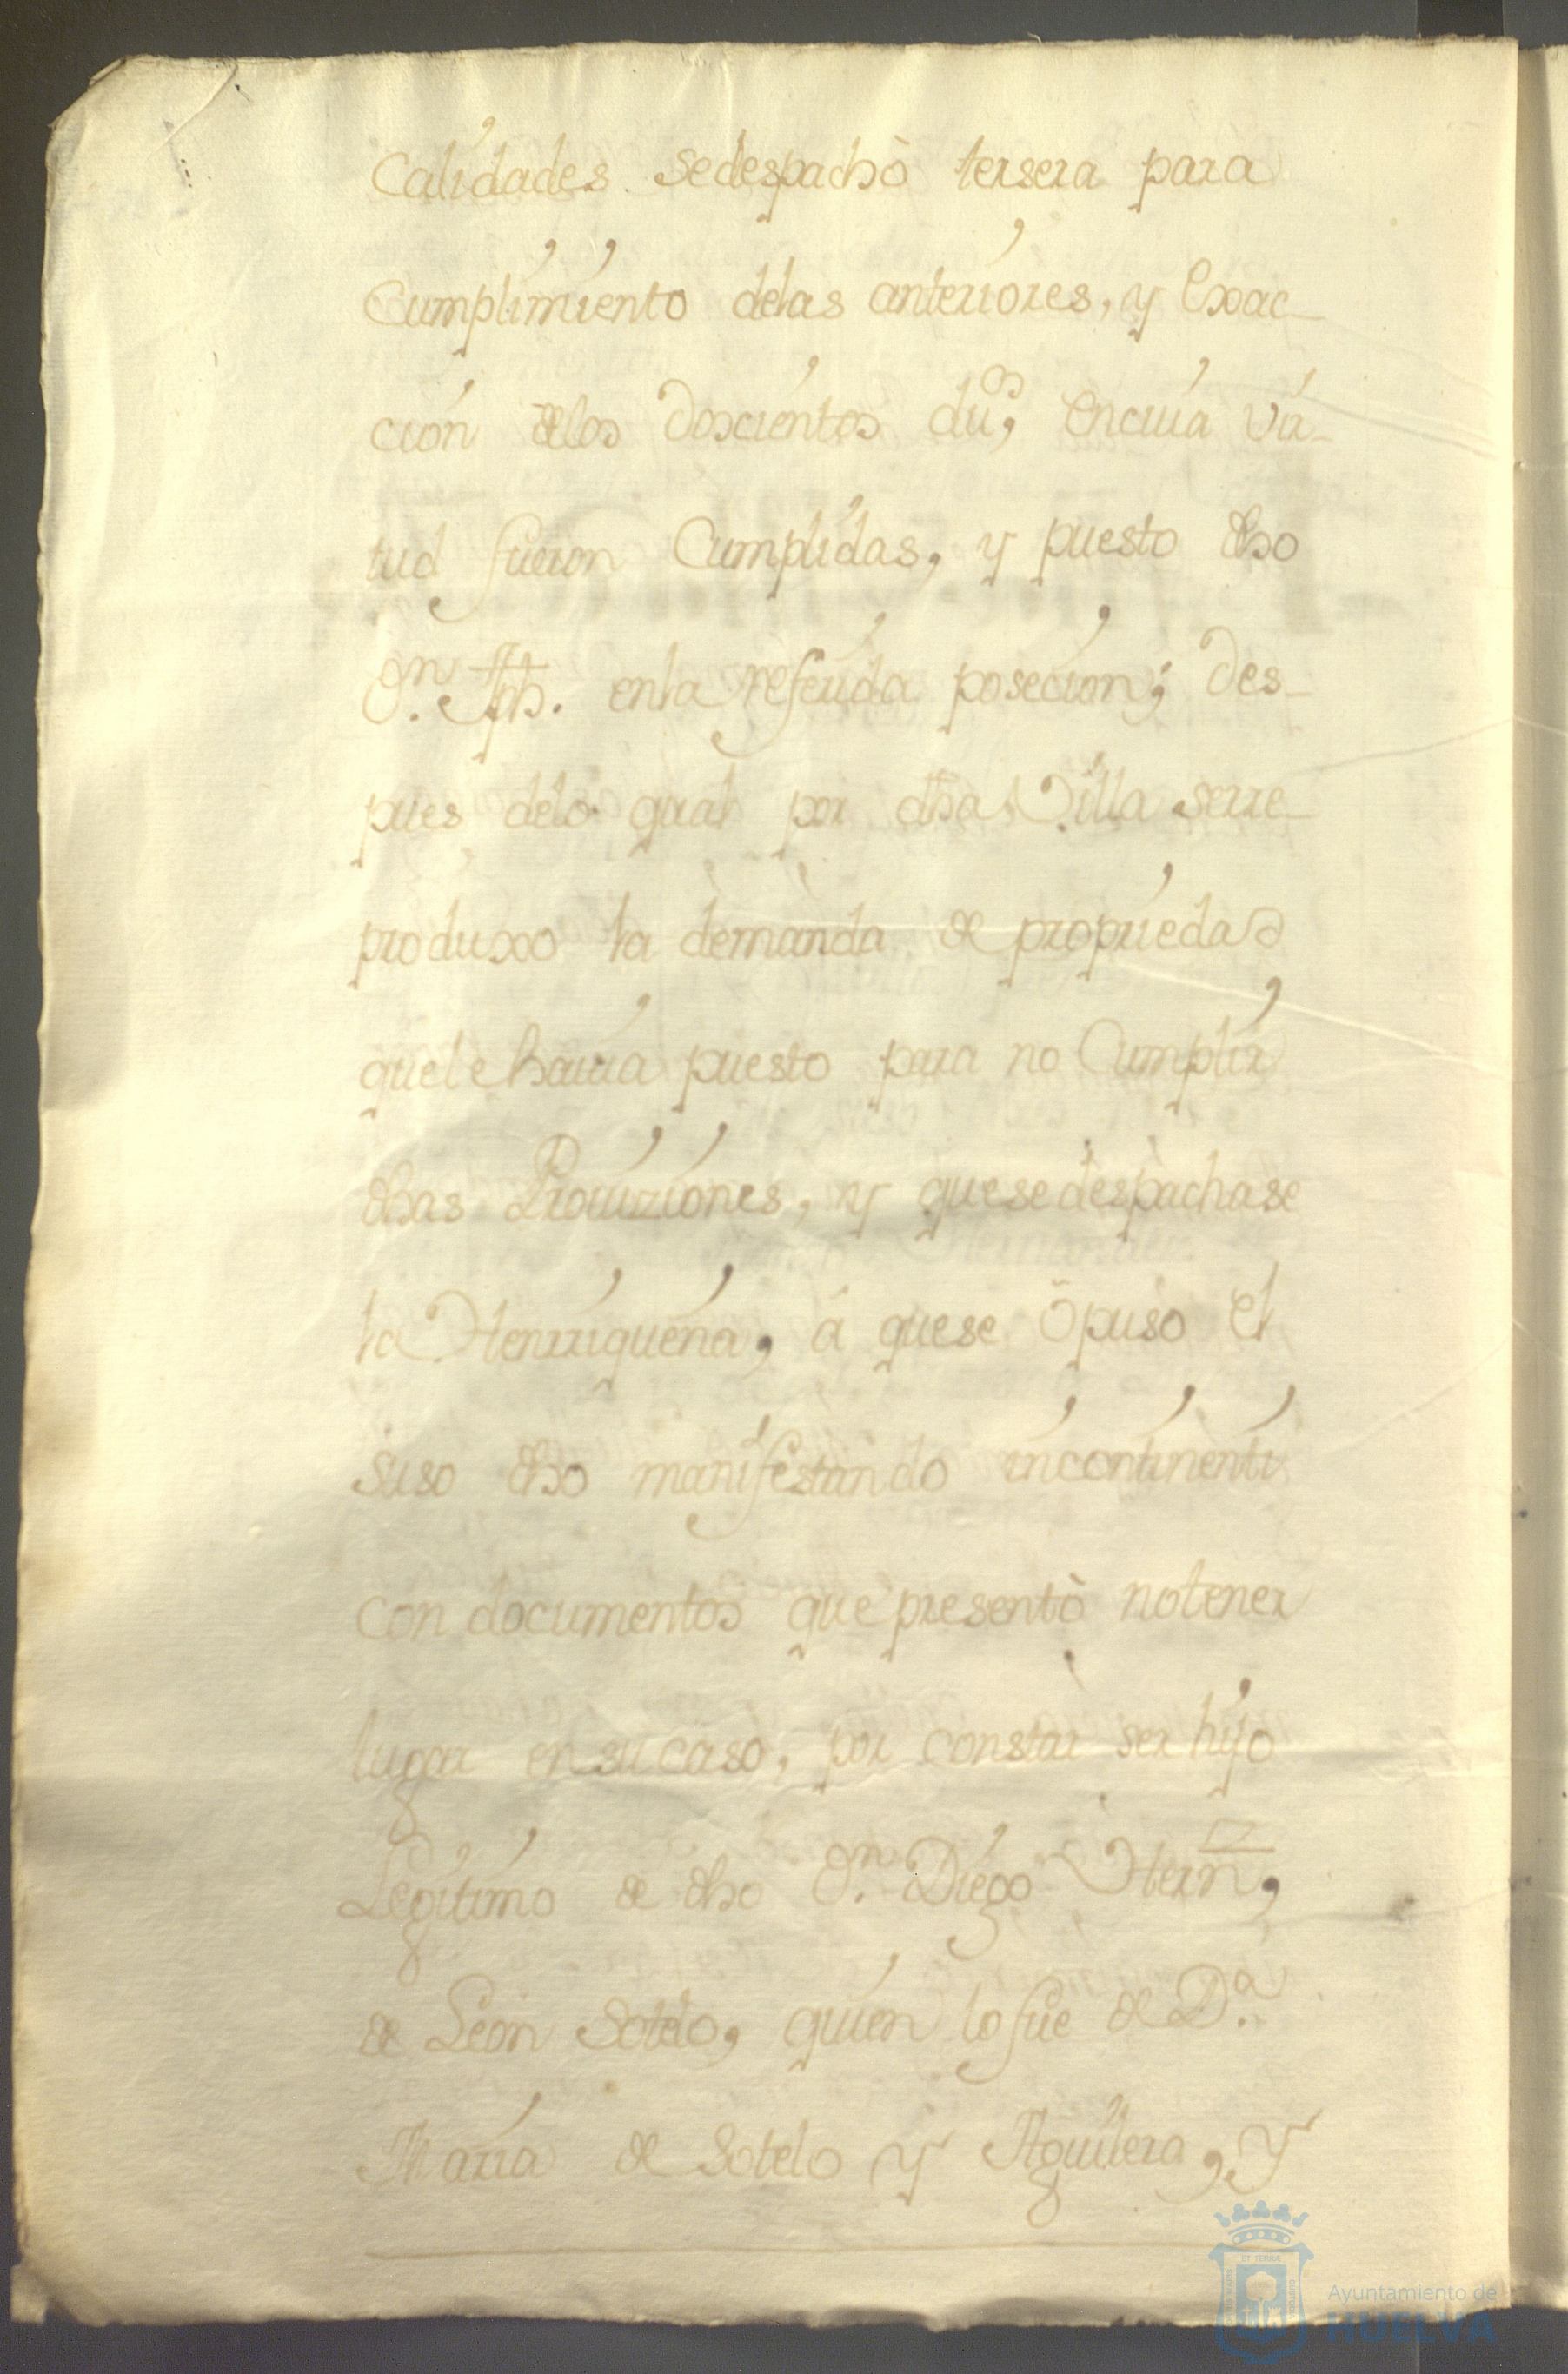 Calidades sedespachò tersera para
Cumplimiento delas anteriores, y Exac_
ción delos Doscientos du.os, Encuía Vir_
tud fueron Cumplidas, y puesto dho
Dn. Jph. enla referida poseción; Des_
pues delo qual por dha Villa serre_
produxo la demanda de propriedad
quele havia puesto para no Cumplir
dhas Provizíones, y quesedespachase
la Henrriqueña, á quese Opuso el
suso dho manifestando incontinenti
con documentos que presentò notener
lugar ensucaso, por constar ser hijo
Legítimo de dho Dn. Diego Hernz,
de León Sotelo, quien lo fue de D.a
María de Sotelo y Aguilera, y
Ayuntamiento de
HUELVA